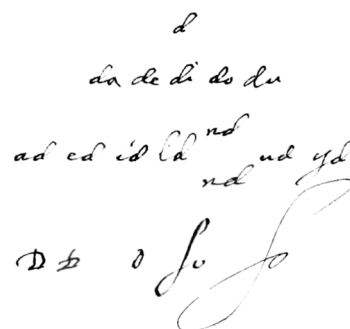 d
da de di do du
ad ed id ld nd nd ud yd
D D